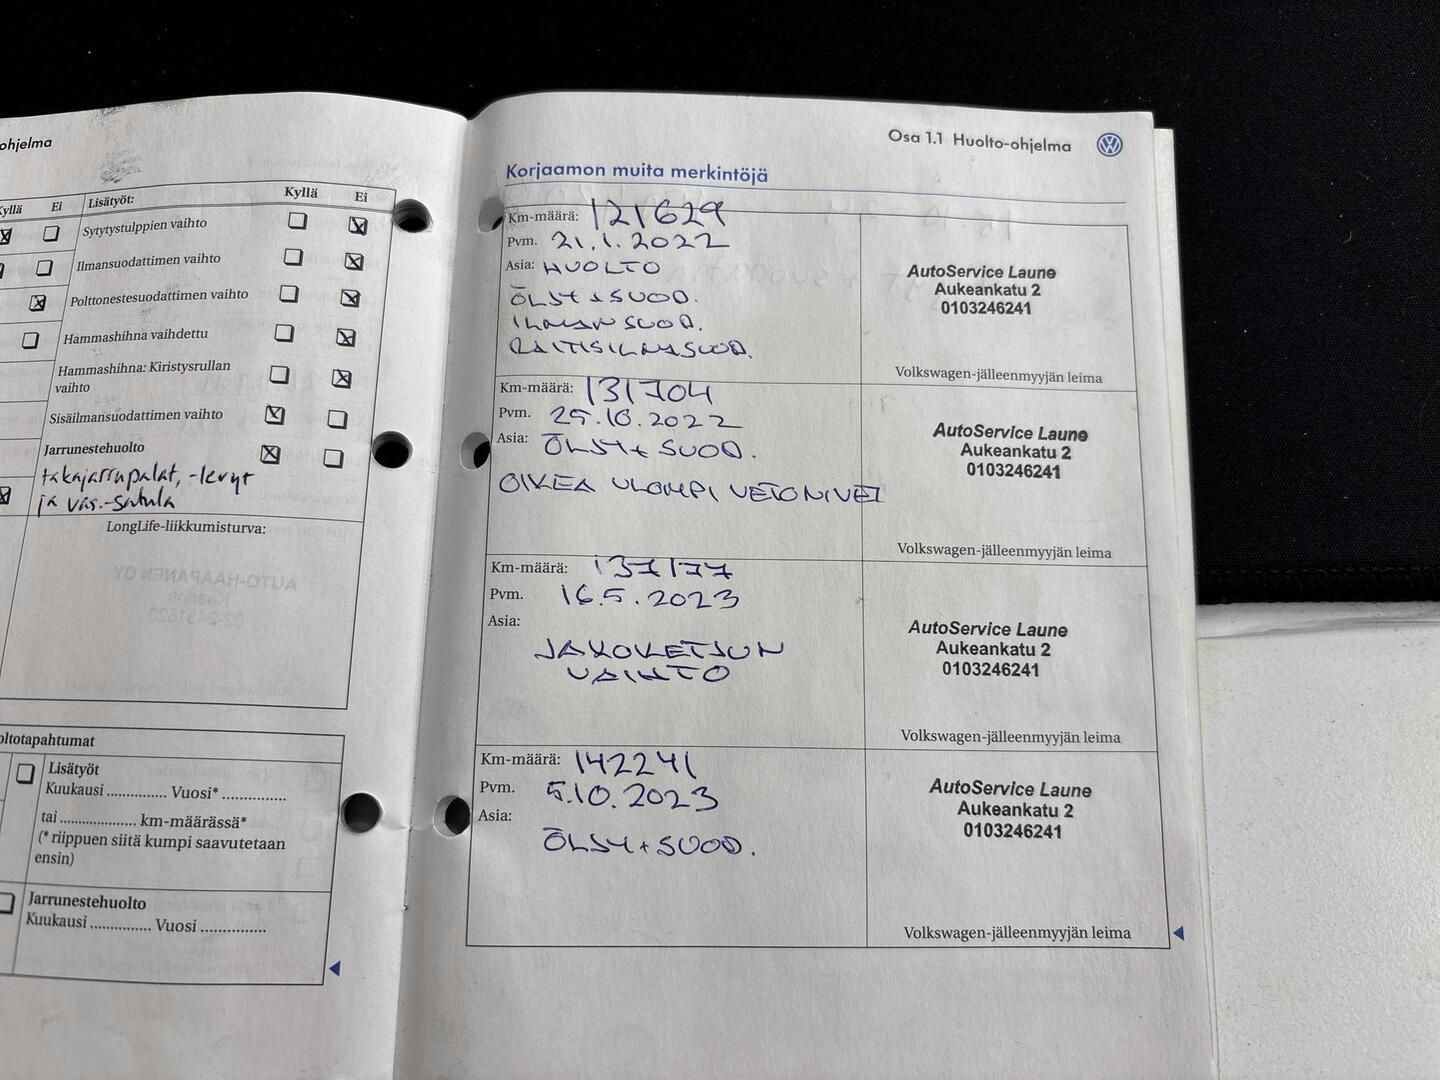 ohjelma
Kyllä Ei Lisätyöt: Kyllä Ei
Sytytystulppien vaihto
Ilmansuodattimen vaihto
Polttonestesuodattimen vaihto
Hammashihna vaihdettu
Hammashihna: Kiristysrullan
vaihto
Sisäilmansuodattimen vaihto
Jarrunestehuolto
takajarrupalat, -levyt
ja vas.-satula
LongLife-liikkumisturva:
AUTO-HAAPANEN OY
Kaarina
02-2431620
oltotapahtumat
Lisätyöt
Kuukausi ............... Vuosi* ...............
tai .................... km-määrässä*
(* riippuen siitä kumpi saavutetaan
ensin)
Jarrunestehuolto
Kuukausi ............... Vuosi ...............
Osa 1.1 Huolto-ohjelma
Korjaamon muita merkintöjä
Km-määrä: 121629
Pvm. 21.1.2022
Asia: HUOLTO
ÖLJY + SUOD.
ILMANSUOD.
RAITISILMASUOD.
AutoService Laune
Aukeankatu 2
0103246241
Volkswagen-jälleenmyyjän leima
Km-määrä: 131704
Pvm. 25.10.2022
Asia: ÖLJY + SUOD.
OIKEA ULOMPI VETONIVEL
AutoService Laune
Aukeankatu 2
0103246241
Volkswagen-jälleenmyyjän leima
Km-määrä: 137177
Pvm. 16.5.2023
Asia:
JAKOKETJUN
VAIHTO
AutoService Laune
Aukeankatu 2
0103246241
Volkswagen-jälleenmyyjän leima
Km-määrä: 142241
Pvm. 5.10.2023
Asia:
ÖLJY + SUOD.
AutoService Laune
Aukeankatu 2
0103246241
Volkswagen-jälleenmyyjän leima